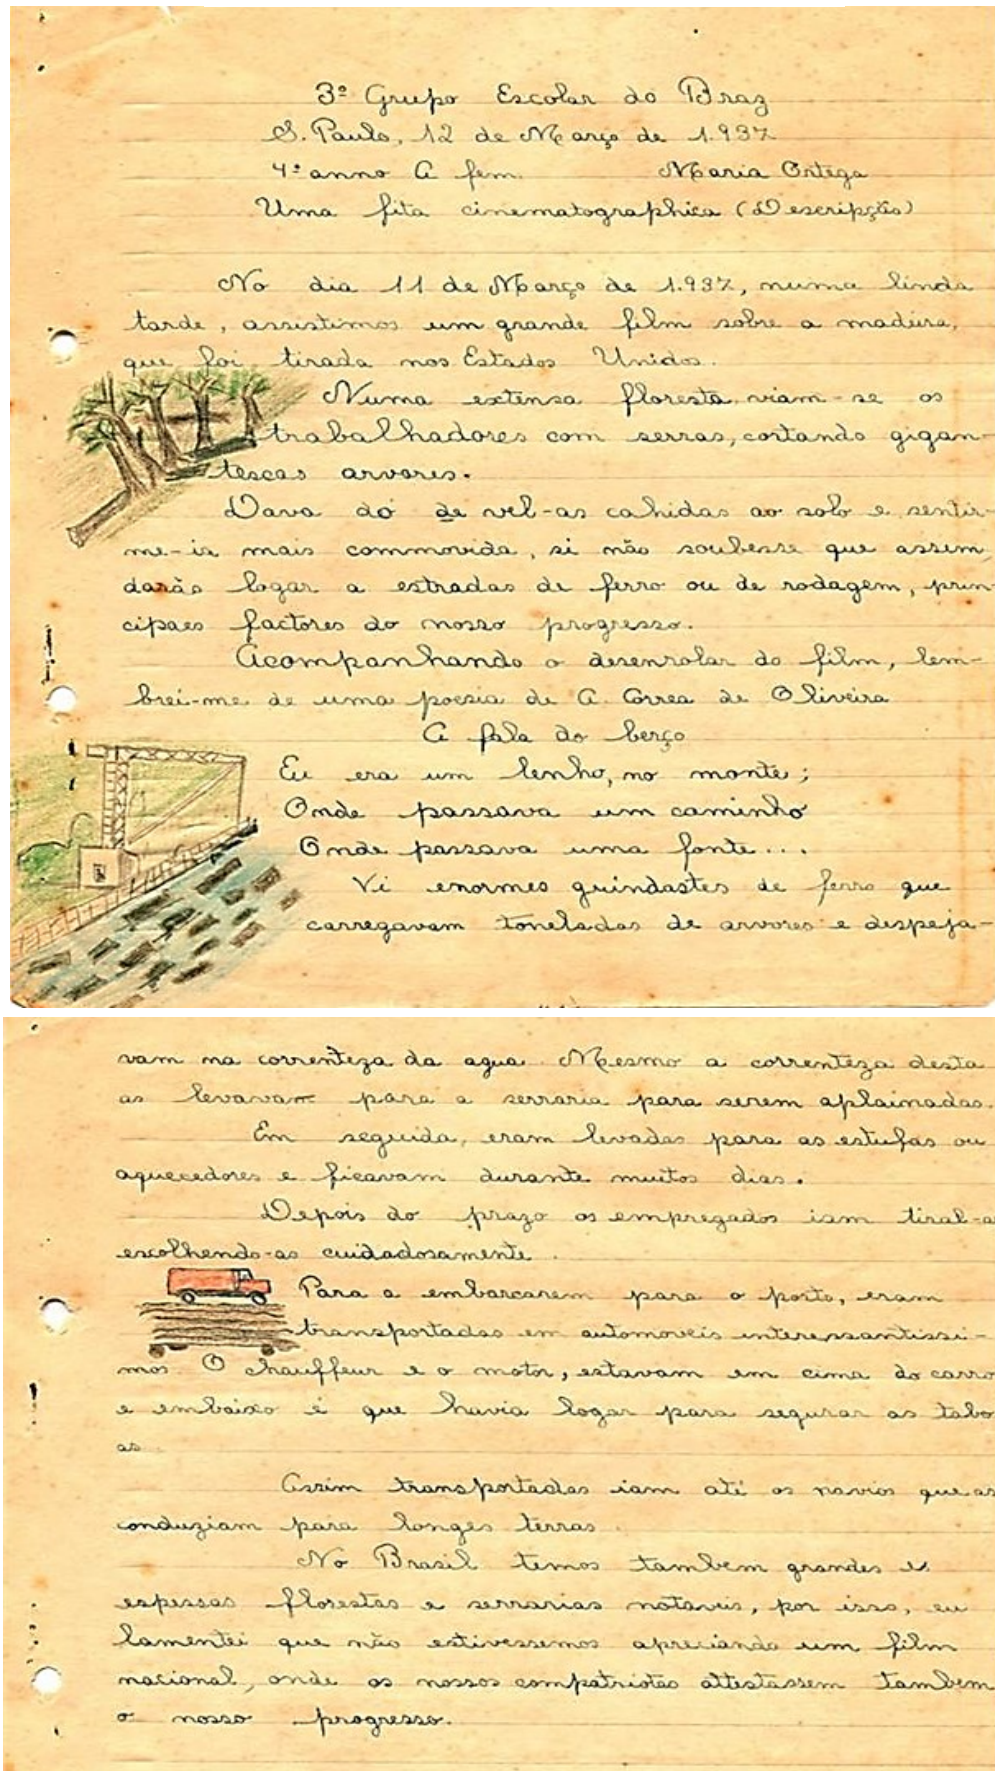 3º Grupo Escolar do Braz
S. Paulo, 12 de Março de 1.937
4º anno A fem. Maria Ortega
Uma fita cinematographica (Descripção)
No dia 11 de Março de 1.937, numa linda
tarde, assistimos um grande film sobre a madeira,
que foi tirada nos Estados Unidos.
Numa extensa floresta viam-se os
trabalhadores com serras, cortando gigan-
tescas arvores.
Dava dó de vel-as cahidas ao solo e sentir-
me-ia mais commovida, si não soubesse que assim,
darão logar a estradas de ferro ou de rodagem, prin-
cipaes factores do nosso progresso.
Acompanhando o desenrolar do film, lem-
brei-me de uma poesia de A. Correa de Oliveira
A fala do berço
Eu era um lenho, no monte;
Onde passava um caminho
Onde passava uma fonte...
Vi enormes guindastes de ferro que
carregavam toneladas de arvores e despeja-
vam na correnteza da agua. Mesmo a correnteza desta
as levavam para a serraria para serem aplainadas.
Em seguida, eram levadas para as estufas ou
aquecedores e ficavam durante muitos dias.
Depois do prazo os empregados iam tiral-as
escolhendo-as cuidadosamente.
Para a embarcarem para o porto, eram
transportadas em automoveis interessantissi-
mos. O chauffeur e o motor, estavam em cima do carro
e embaixo é que havia logar para segurar as tabo
as.
Assim transportadas iam até os navios que as
conduziam para longes terras.
No Brasil temos tambem grandes e
espessas florestas e serrarias notaveis, por isso, eu
lamentei que não estivessemos apreciando um film
nacional, onde os nossos compatriotas attestassem tambem
o nosso progresso.